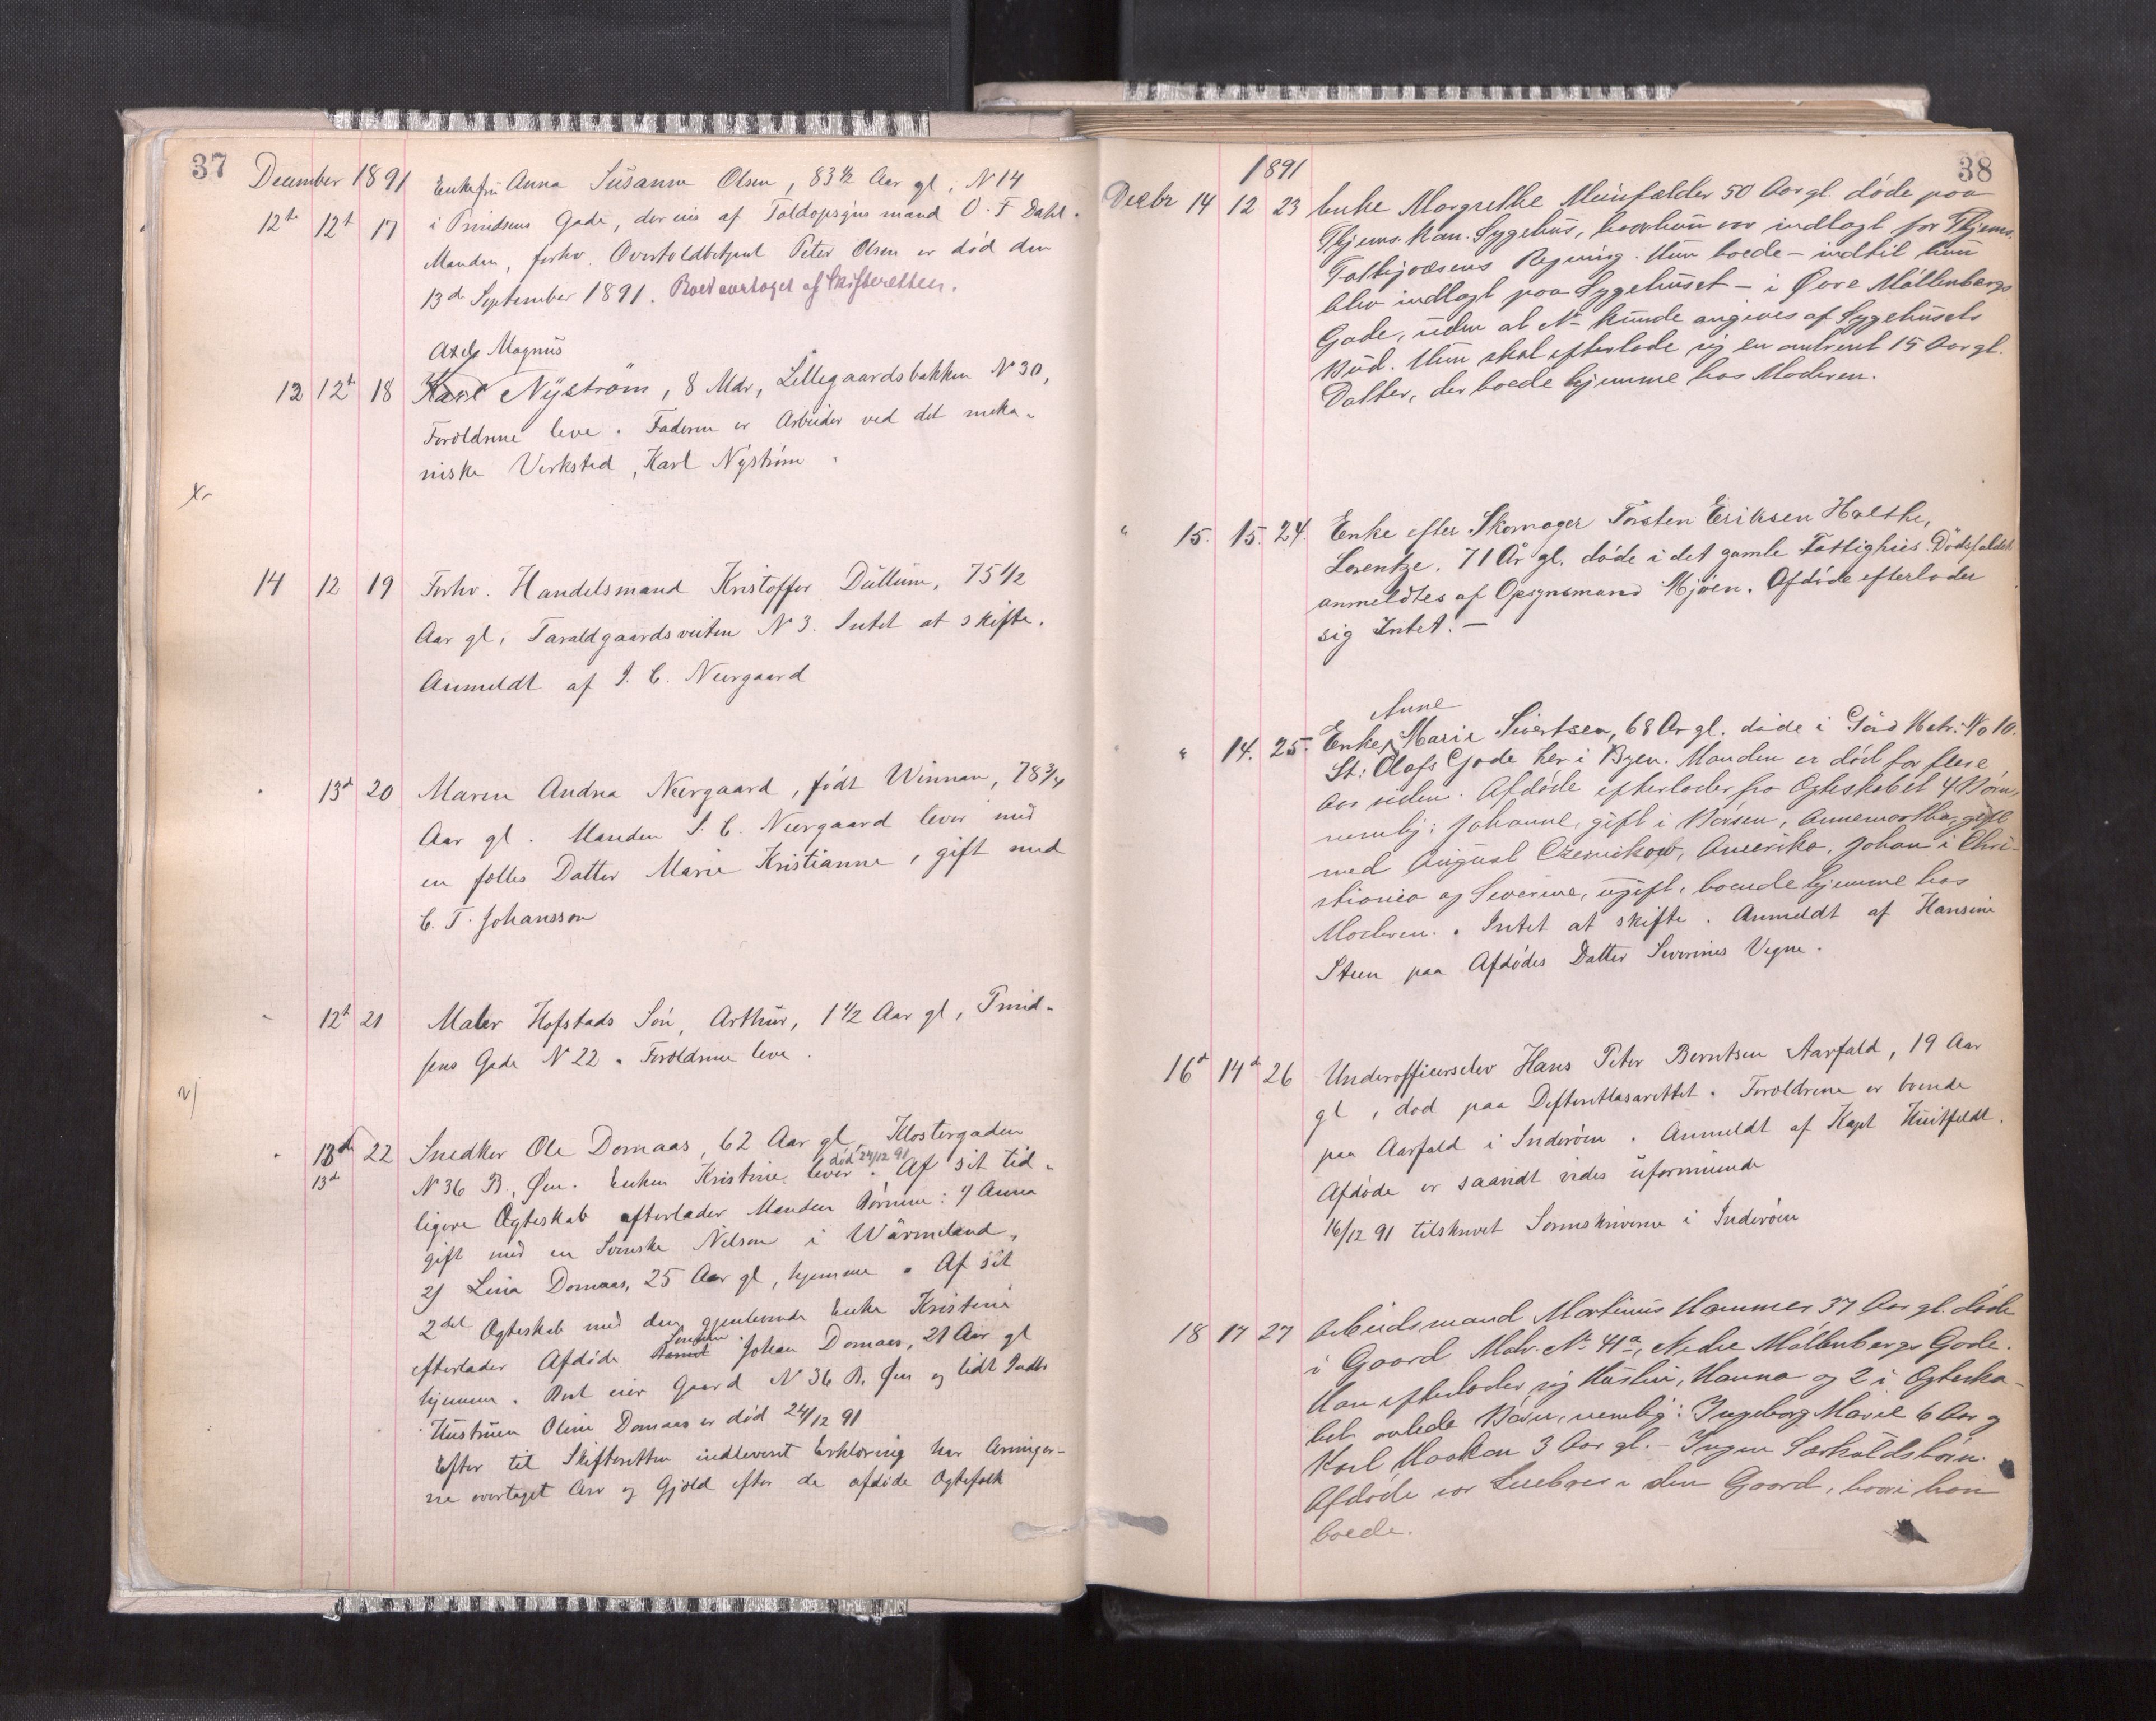 37
December 1891
Enkefru Anna Susanna Olsen, 83 1/2 Aar gl, N 14
12te 12t 17 i Prindsens Gade, der eies af Toldopsynsmand O. F. Dahl.
Manden, forhv. Overtoldbetjent Peter Olsen er död den
13d September 1891. Boet overtaget af Skifteretten.
Axel Magnus
12 12t 18 Karl Nyström, 8 Mdr, Lillegaardsbakken N 30,
Foröldrene leve. Faderen er Arbeider ved det meka-
niske Verksted, Karl Nyström.
14 12 19 Forhv. Handelsmand Kristoffer Düllum, 75 1/2
Aar gl, Taraldgaardsveiten N 3. Intet at skifte.
Anmeldt af I. C. Neergaard
13d 20 Maren Andrea Neergaard, födt Winnan, 78 3/4
Aar gl. Manden I. C. Neergaard lever med
en fælles Datter Marie Kristianne, gift med
C. T. Johansson
12t 21 Maler Hofstads Sön, Arthur, 1 1/2 Aar gl, Prind-
sens Gade N 22. Foröldrene leve.
2)
13de 22 Snedker Ole Domaas, 62 Aar gl, Klostergaden
död 24/12 91
13d N 36 B, Öen. Enken Kristine lever. Af sit tid-
ligere Ægteskab efterlader Manden Börnene: 1) Anna
gift med en Svenske Nilson i Wärmeland,
2) Lina Domaas, 25 Aar gl, hjemme. Af sit
2det Ægteskab med den gjenlevende Enke Kristine
Sönnen
efterlader Afdöde Barnet Johan Domaas, 21 Aar gl
hjemme. Boet eier Gaard N 36 B. Öen og lidt Indbo
Hustruen Oline Domaas er död 24/12 91
Efter til Skifteretten indleveret Erklæring har Arvinger-
ne overtaget Arv og Gjæld efter de afdöde Ægtefolk
38
1891
Decbr 14 12 23 Enke Margrethe Meinfælder 50 Aar gl. döde paa
Thjems. Kom. Sygehus, hvor hun var indlagt for Thjems.
Fattigvæsens Regning. Hun boede – indtil hun
blev indlagt paa Sygehuset – i Övre Möllenbergs
Gade, uden at No kunde angives af Sygehusets
Bud. Hun skal efterlade sig en omtrent 15 Aar gl.
Datter, der boede hjemme hos Moderen.
" 15. 15. 24. Enke efter Skomager Torsten Eriksen Holthe,
Lorentze, 71 År gl. döde i det gamle Fattighus. Dödsfaldet
anmeldtes af Opsynsmand Mjöen. Afdöde efterlader
sig Intet. –
Anne
" 14. 25. Enke Marie Sivertsen, 68 År gl. döde i Gård Matr: No 10.
St: Olafs Gade her i Byen. Manden er död for flere
Aar siden. Afdöde efterlader fra Ægteskabet 4 Börn,
nemlig: Johanne, gift i Börsen, Annemartha, gift
med August Czernikow, Amerika, Johan i Chri-
stiania og Severine, ugift, boende hjemme hos
Moderen. Intet at skifte. Anmeldt af Hansine
Steen paa Afdödes Datter Severines Vegne.
16d 14d 26 Underofficerselev Hans Peter Berntsen Aarfald, 19 Aar
gl, död paa Difteritlasarettet. Foröldrene er boende
paa Aarfald i Inderöen. Anmeldt af Kapt Huitfeldt.
Afdöde er saavidt vides uformuende
16/12 91 tilskrevet Sorenskriveren i Inderöen
18 17 27 Arbeidsmand Martinus Hammer 37 Aar gl. döde
i Gaard Matr. No 41a, Nedre Möllenbergs Gade.
Han efterlader sig Hustru, Hanna og 2 i Ægteska-
bet avlede Börn, nemlig: Ingeborg Marie 6 Aar og
Karl Haakon 3 Aar gl. – Ingen Særkuldsbörn.
Afdöde var Leieboer i den Gaard, hvori han
boede.